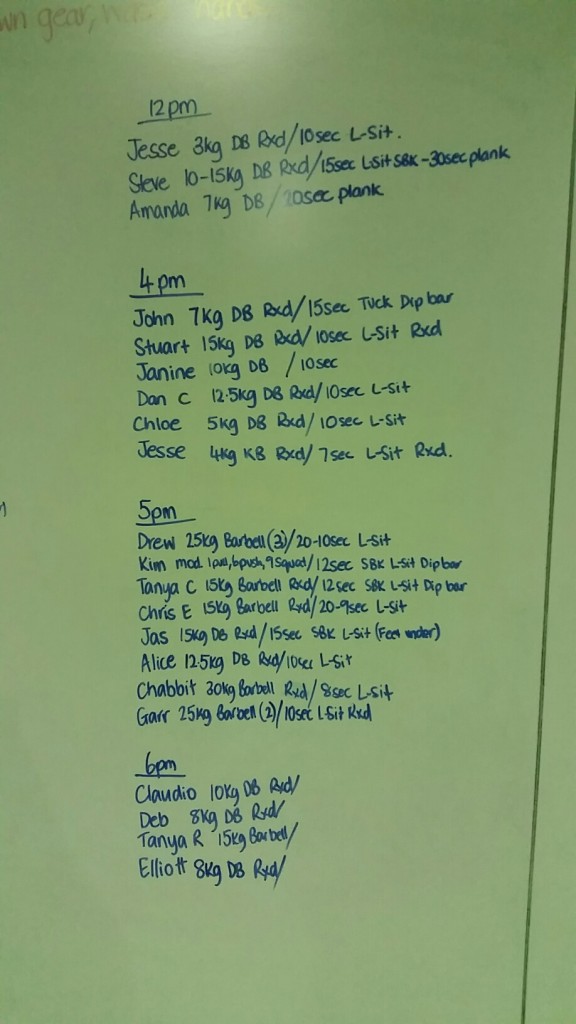 wn gear,
12pm
Jesse 3kg DB Rxd/10sec L-Sit.
Steve 10-15kg DB Rxd/15sec L-Sit SBK-30sec plank
Amanda 7kg DB /20sec plank
4pm
John 7kg DB Rxd/15sec Tuck Dip bar
Stuart 15kg DB Rxd/10sec L-Sit Rxd
Janine 10kg DB /10sec
Dan C 12.5kg DB Rxd/10sec L-Sit
Chloe 5kg DB Rxd/10sec L-Sit
Jesse 4kg KB Rxd/7sec L-Sit Rxd.
5pm
Drew 25kg Barbell(3)/20-10sec L-Sit
Kim mod. 1pull,6push,9Squad/12sec SBK L-Sit Dipbar
Tanya C 15kg Barbell Rxd/12sec SBK L-Sit Dip bar
Chris E 15kg Barbell Rxd/20-9sec L-Sit
Jas 15kg DB Rxd/15sec SBK L-Sit (Feet under)
Alice 12.5kg DB Rxd/10sec L-Sit
Chabbit 30kg Barbell Rxd/8sec L-Sit
Garr 25kg Barbell(2)/10sec L-Sit Rxd
6pm
Claudio 10kg DB Rxd/
Deb 8kg DB Rxd/
Tanya R 15kg Barbell/
Elliott 8kg DB Rxd/